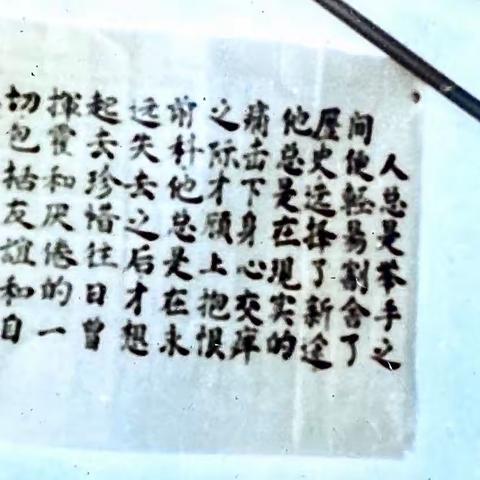 人总是举手之
间便轻易割舍了
歷史选择了新途
他总是在现实的
痛击下身心交瘁
之际才顾上抱恨
前科他总是在永
远失去之后才想
起去珍惜往日曾
挥霍和厌倦的一
切包括友谊和自